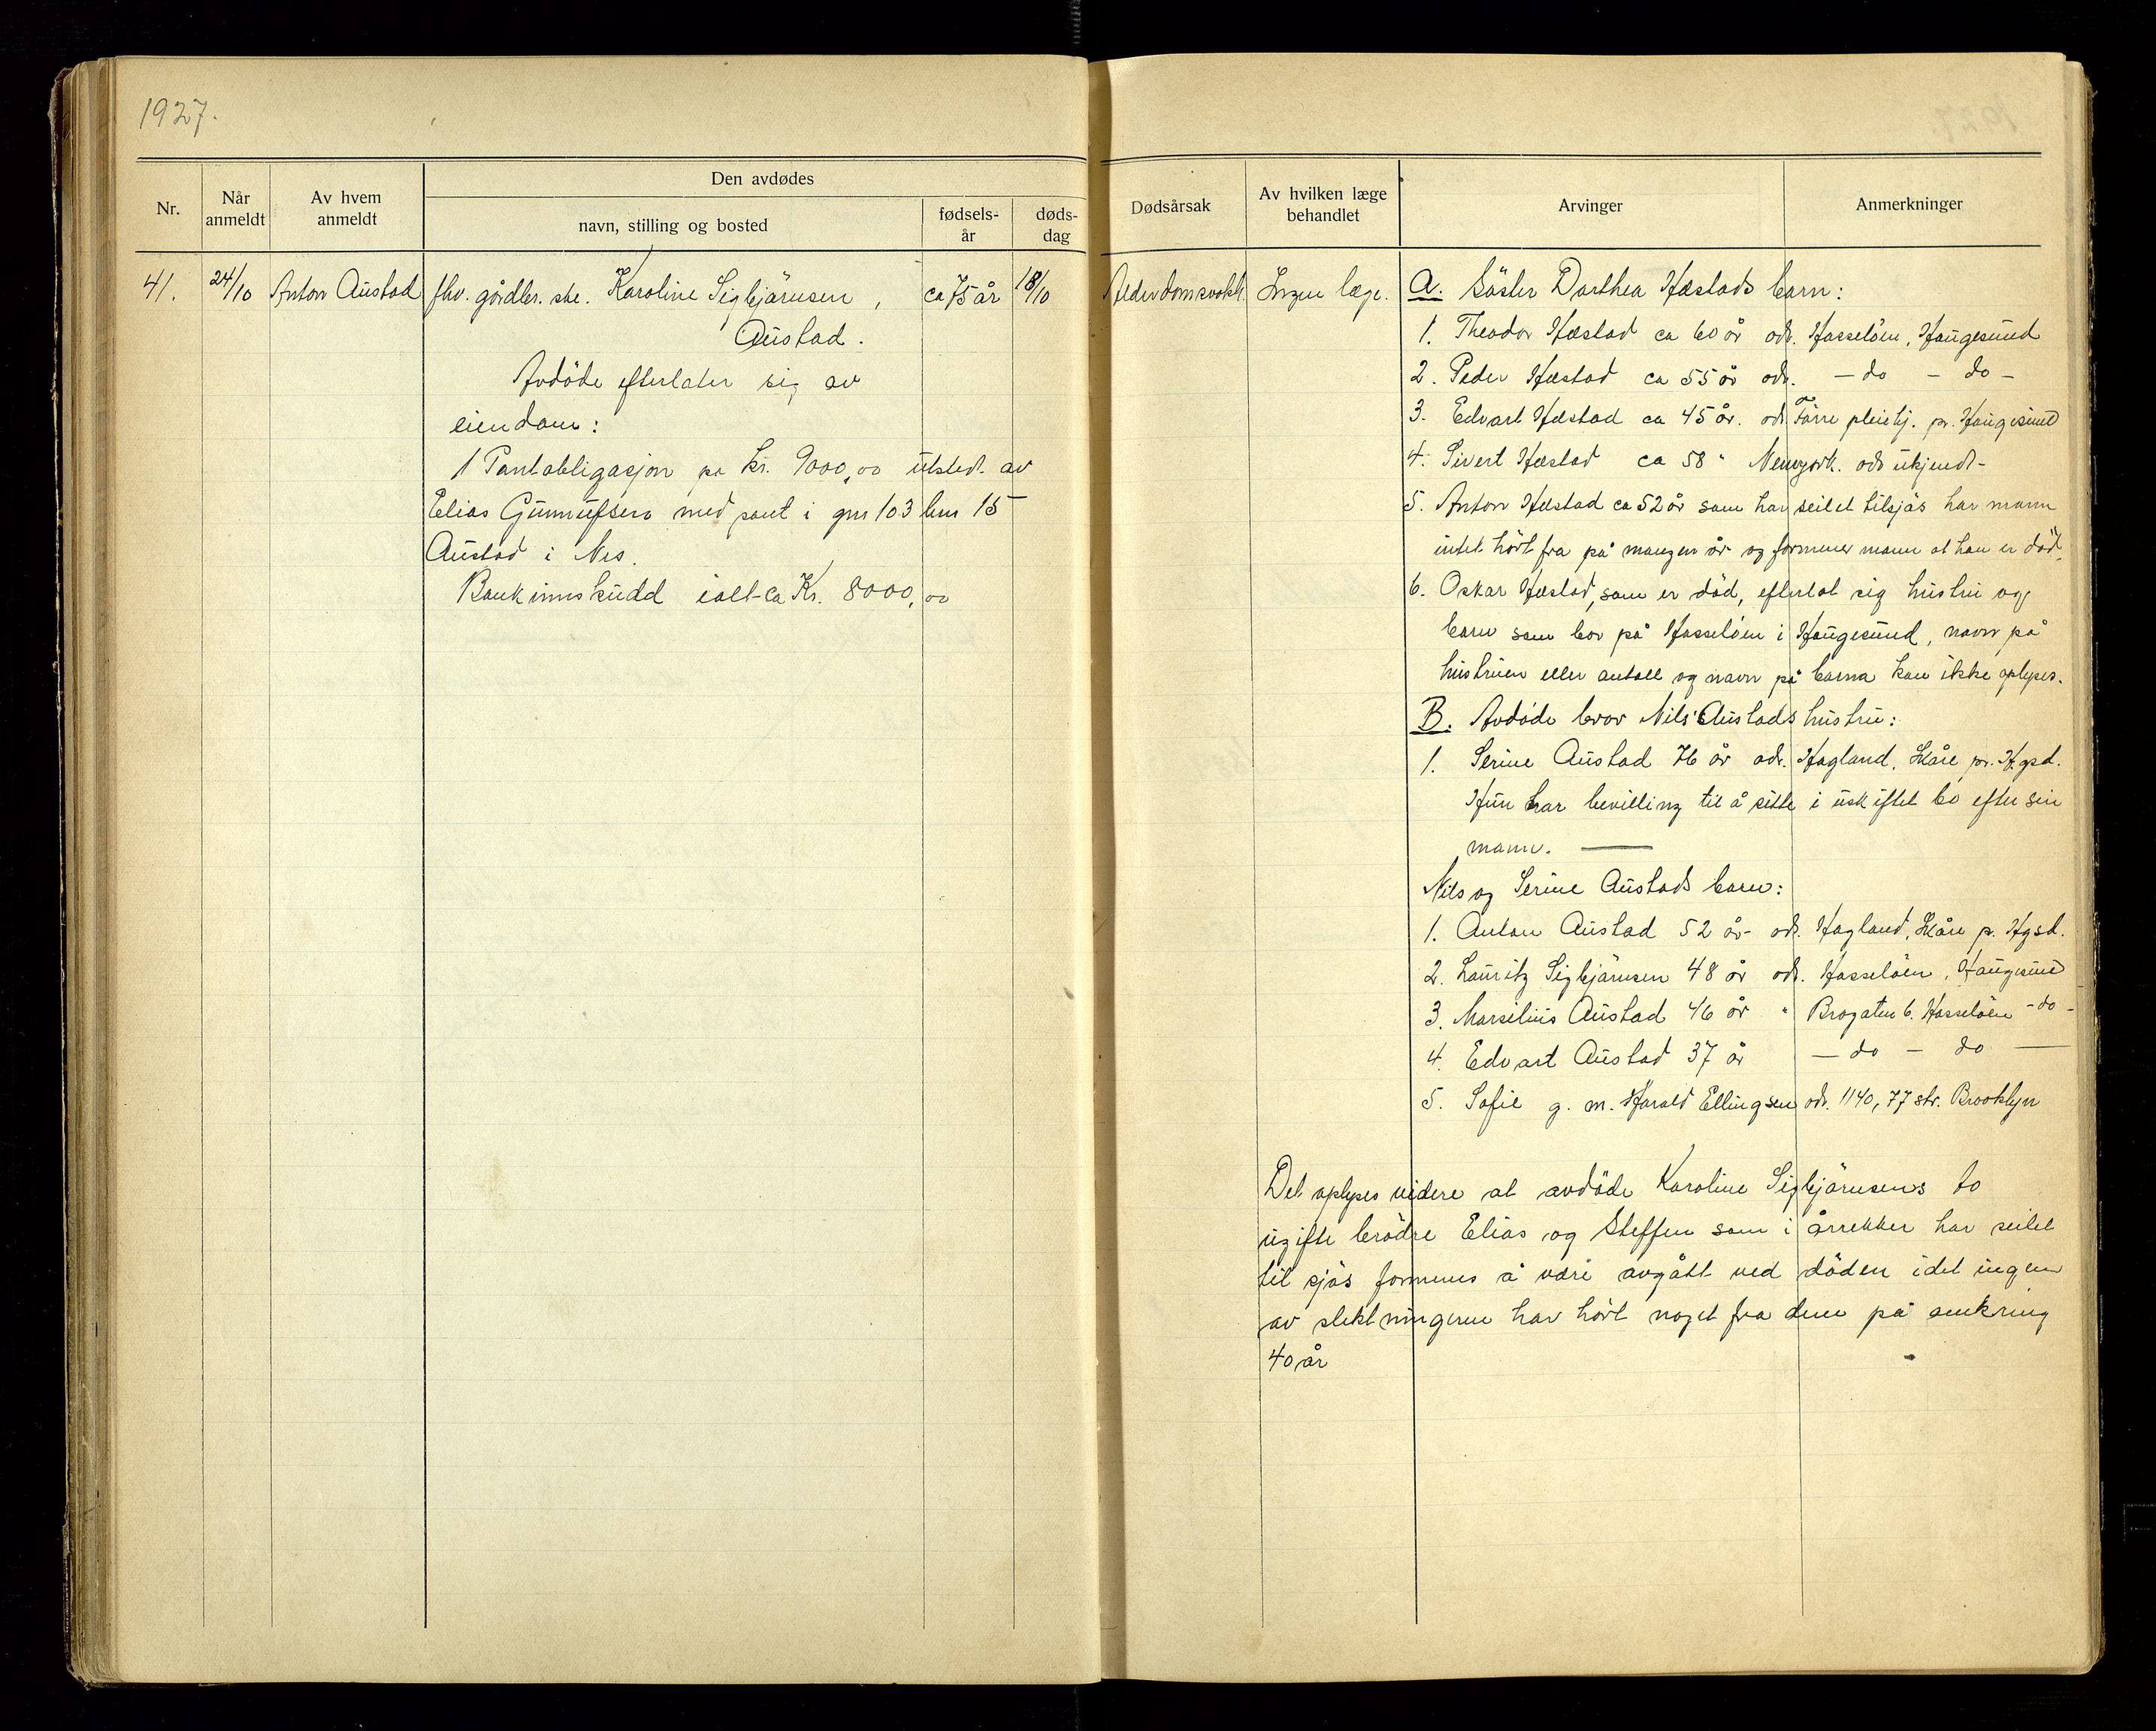 1927.
Nr.
Når anmeldt
Av hvem anmeldt
Den avdødes
navn, stilling og bosted
fødsels-år
døds-dag
Dødsårsak
Av hvilken læge behandlet
Arvinger
Anmerkninger
41. 24/10 Anton Austad fhv. gårdbr.ske. Karoline Sigbjörnsen, ca 75 år 18/10 Alderdomsvakh. Ingen læge.
Austad.
Avdöde efterlater sig av
eiendom:
1 Pantobligasjon på kr. 9000,00 utsted. av
Elias Gunnufsen med pant i gnr 103 bnr 15
Austad i Nes.
Bankinnskudd ialt ca Kr. 8000,00
A. Söster Dorthea Hæstads barn:
1. Theodor Hæstad ca 60 år adr. Hasselöen, Haugesund
2. Peder Hæstad ca 55 år adr. - do - do -
3. Edvart Hæstad ca 45 år. adr. Förre pleiehj. pr. Haugesund
4. Sivert Hæstad ca 58 " Newyork. adr ukjendt -
5. Anton Hæstad ca 52 år som har seilet tilsjös har mann
intet hört fra på mangen år og formener mann at han er död.
6. Oskar Hæstad, som er död, efterlot sig hustru og
barn som bor på Hasselöen i Haugesund, navn på
hustruen eller antall og navn på barna kan ikke oplyses.
B. Avdöde bror Nils Austads hustru:
1. Serine Austad 76 år adr. Hagland, Skåre, pr. Hgsd.
Hun har bevilling til å sitte i uskiftet bo efter sin
mann. —
Nils og Serine Austads barn:
1. Anton Austad 52 år adr. Hagland, Skåre p. Hgsd.
2. Lauritz Sigbjörnsen 48 år adr. Hasselöen, Haugesund
3. Marselius Austad 46 år " Brogaten 6. Hasselöen - do -
4. Edvart Austad 37 år — do — do —
5. Sofie g. m. Harald Ellingsen adr. 1140, 77 str. Brooklyn
Det oplyses videre at avdöde Karoline Sigbjörnsens to
ugifte brödre Elias og Steffen som i årrekker har seilet
til sjös formenes å være avgått ved döden idet ingen
av slektningene har hört noget fra dem på omkring
40 år